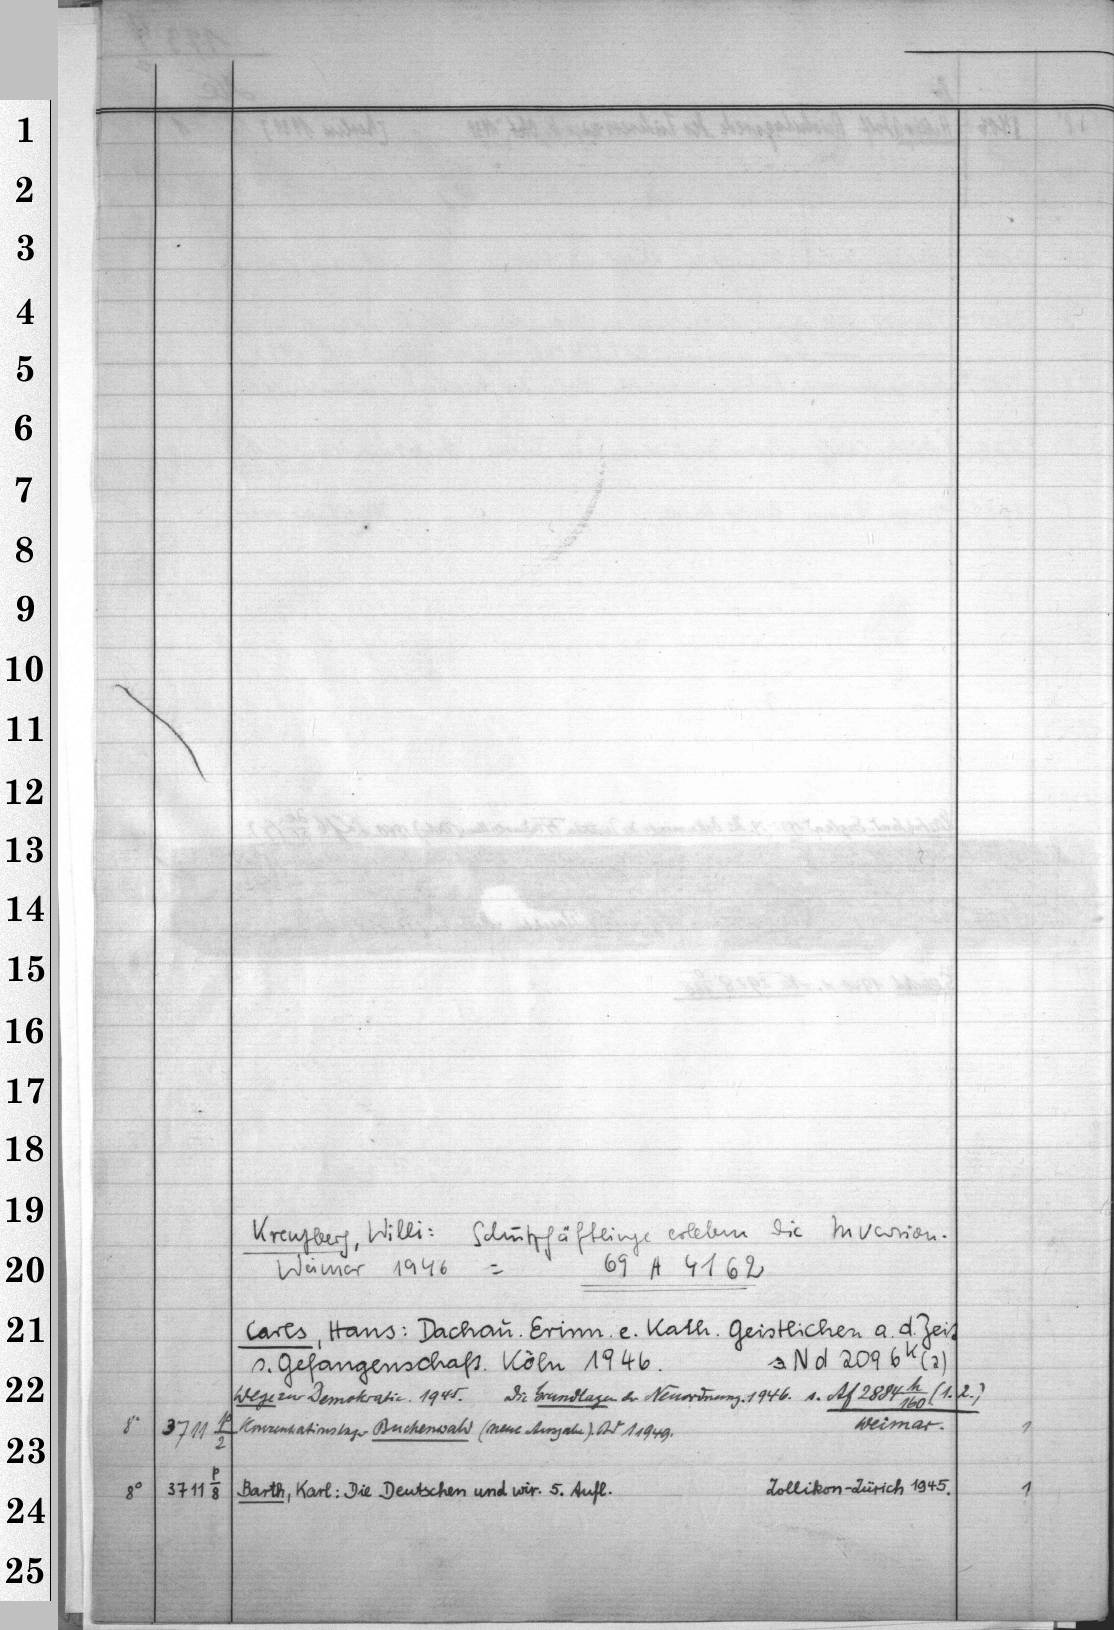 1
2
3
4
5
6
7
8
9
10
11
12
13
14
15
16
17
18
19
20
21
22
23
24
25
Kreuzberg, Willi: Schutzhäftlinge erleben die Invasion.
Weimar 1946 = 69 A 4162
Carls, Hans: Dachau. Erinn. e. Kath. Geistlichen a. d. Zeit
s. Gefangenschaft. Köln 1946. Nd 2096 k (2)
Wege zur Demokratie. 1945. Die Grundlagen der Neuordnung. 1946. s. Af 2884 h/160 (1. 2.)
8° 3711 p/2 Konzentrationslager Buchenwald (neue Ausgabe). Bd 1 1949. Weimar. 1
8° 3711 p/8 Barth, Karl: Die Deutschen und wir. 5. Aufl. Zollikon-Zürich 1945. 1